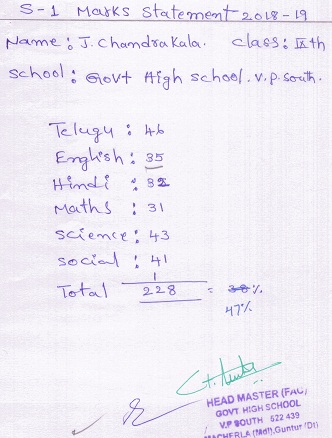 S-1 Marks Statement 2018-19
Name : J. Chandra Kala. class : IXth
School : Govt High school. V.P. South.
Telugu : 46
English : 35
Hindi : 32
Maths : 31
Science : 43
Social : 41
1
Total 228 = 38%
47%
HEAD MASTER (FAC)
GOVT HIGH SCHOOL
V.P SOUTH 522 439
MACHERLA (Mdl), Guntur (Dt)